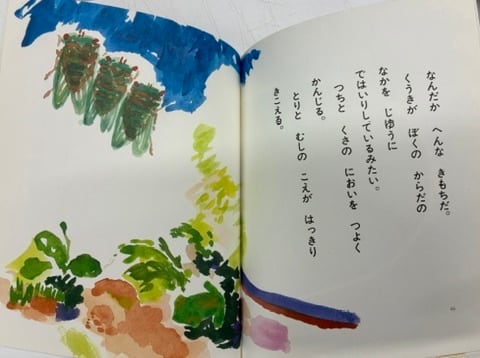 なんだか　へんな　きもちだ。
くうきが　ぼくの　からだの
なかを　じゆうに
ではいりしているみたい。
つちと　くさの　においを　つよく
かんじる。
とりと　むしの　こえが　はっきり
きこえる。